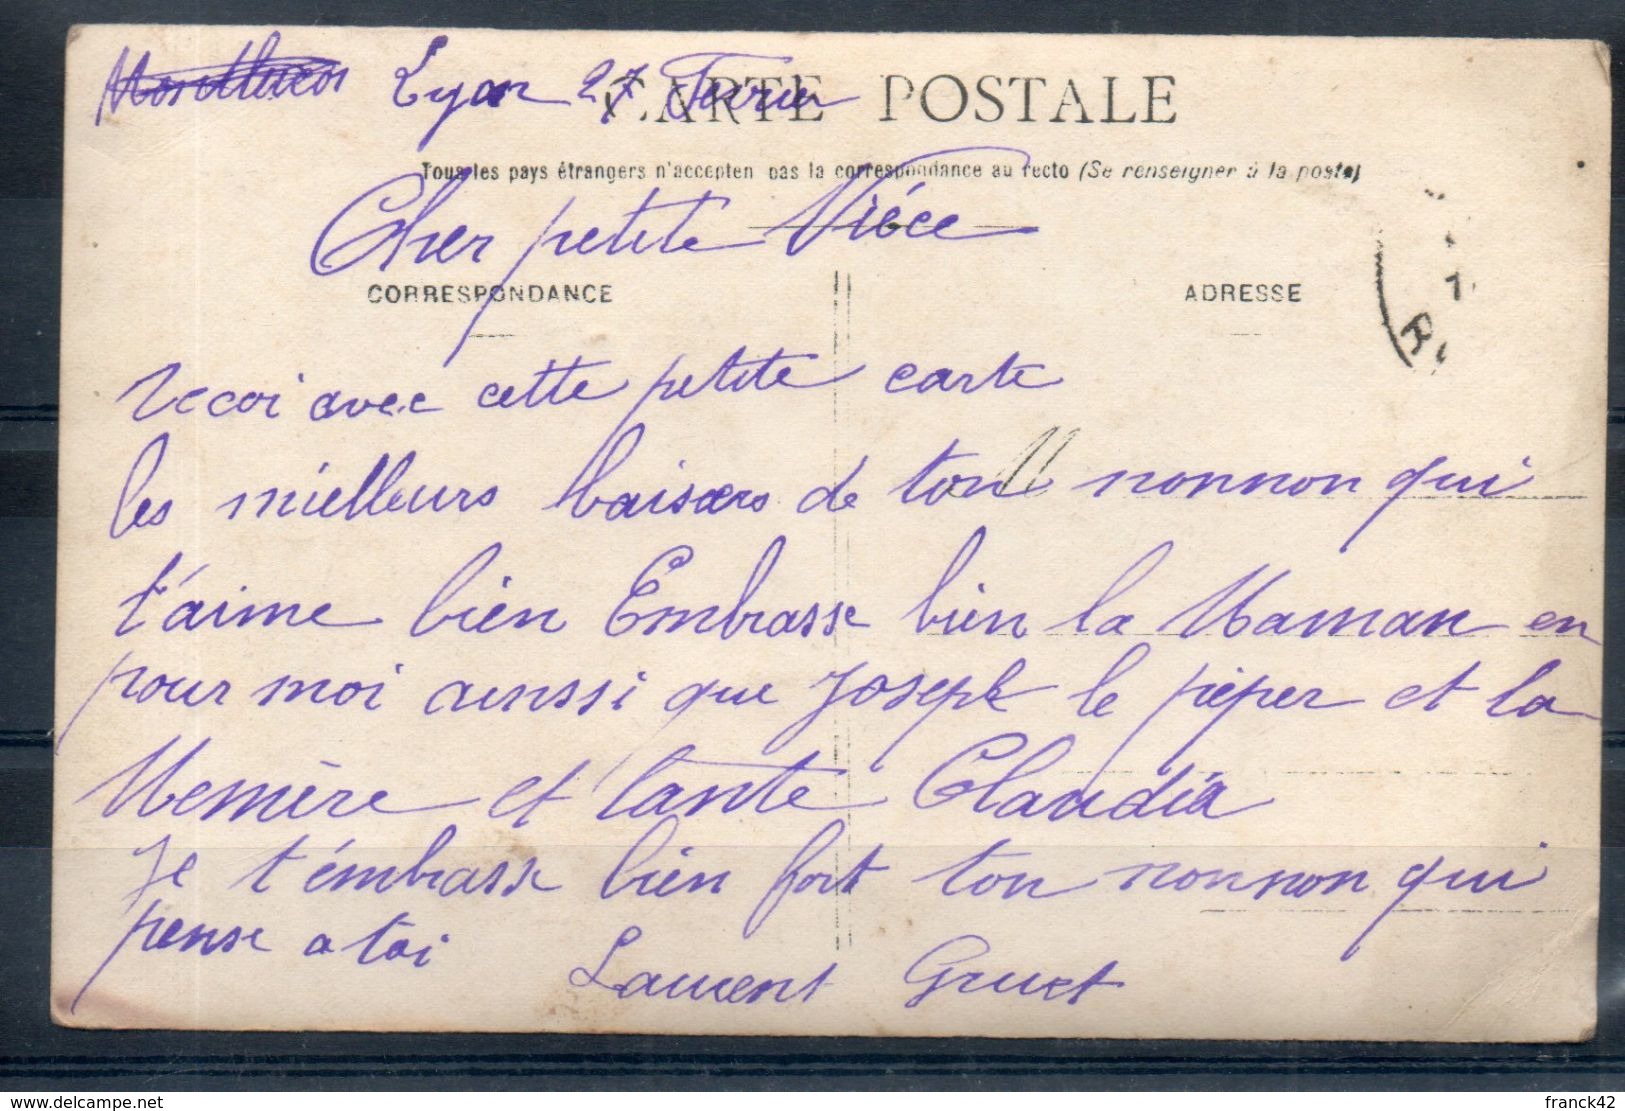 Lyon 27 Fevrier
CARTE POSTALE
Tous les pays étrangers n'accepten pas la correspondance au recto (Se renseigner à la poste)
Cher petite Niéce
CORRESPONDANCE
ADRESSE
recoi avec cette petite carte
les mielleurs baisers de ton nonnon qui
t'aime bien Embrasse bien la Maman en
pour moi ainssi que Joseph le pèper et la
Memère et tante Claudia
Je t'émbrasse bien fort ton nonnon qui
pense a toi
Laurent Gruet
https://www.delcampe.net
franck42